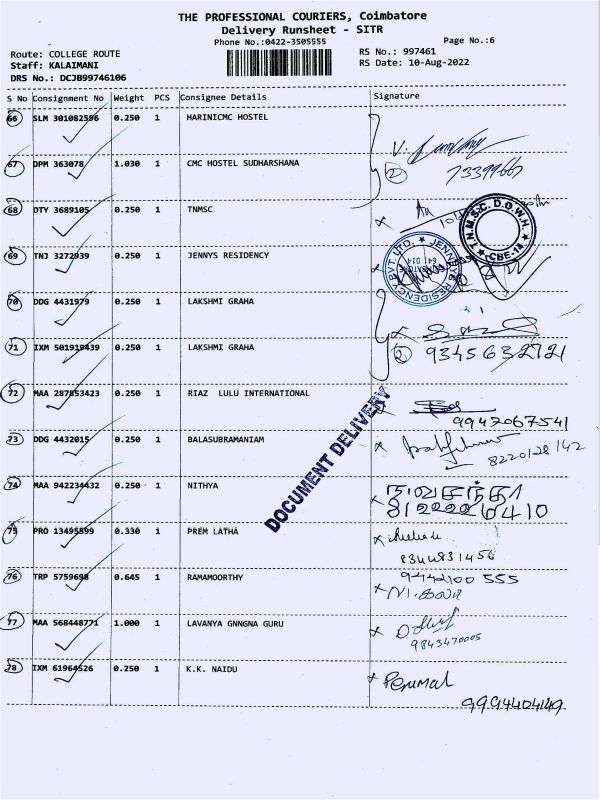 THE PROFESSIONAL COURIERS, Coimbatore
Delivery Runsheet - SITR
Phone No.:0422-3505555
Page No.:6
Route: COLLEGE ROUTE
RS No.: 997461
Staff: KALAIMANI
RS Date: 10-Aug-2022
DRS No.: DCJB99746106
S No Consignment No Weight PCS Consignee Details Signature
66 SLM 301082596 0.250 1 HARINICMC HOSTEL
67 DPM 363078 1.030 1 CMC HOSTEL SUDHARSHANA
2
68 DTY 3689105 0.250 1 TNMSC
T.N.M.S.C. D.W.H. CBE-14
69 TNJ 3272939 0.250 1 JENNYS RESIDENCY
JENNYS RESIDENCY PVT. LTD. 641 014
70 DDG 4431979 0.250 1 LAKSHMI GRAHA
71 IXM 501919439 0.250 1 LAKSHMI GRAHA
2 9345632721
72 MAA 287853423 0.250 1 RIAZ LULU INTERNATIONAL
9942067541
DOCUMENT DELIVERY
73 DDG 4432015 0.250 1 BALASUBRAMANIAM
8220128142
74 MAA 942234432 0.250 1 NITHYA
75 PRO 13495599 0.330 1 PREM LATHA
9344831456
76 TRP 5759698 0.645 1 RAMAMOORTHY
9442100 555
77 MAA 568448771 1.000 1 LAVANYA GNNGNA GURU
9843470005
78 IXM 61964526 0.250 1 K.K. NAIDU
Perumal
9994404149